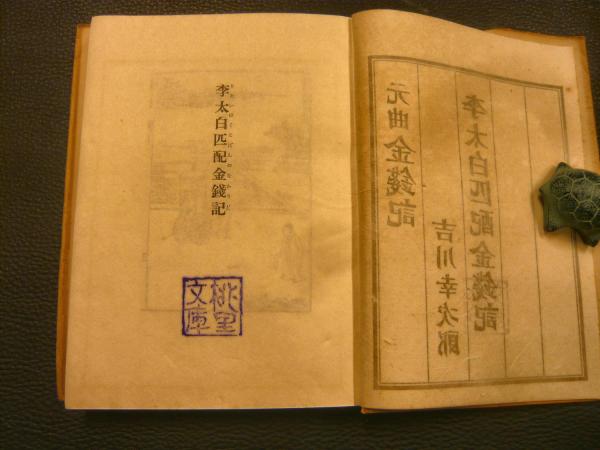 元曲金錢記
李太白匹配金錢記
吉川幸次郎
李太白匹配金錢記
桃里
文庫